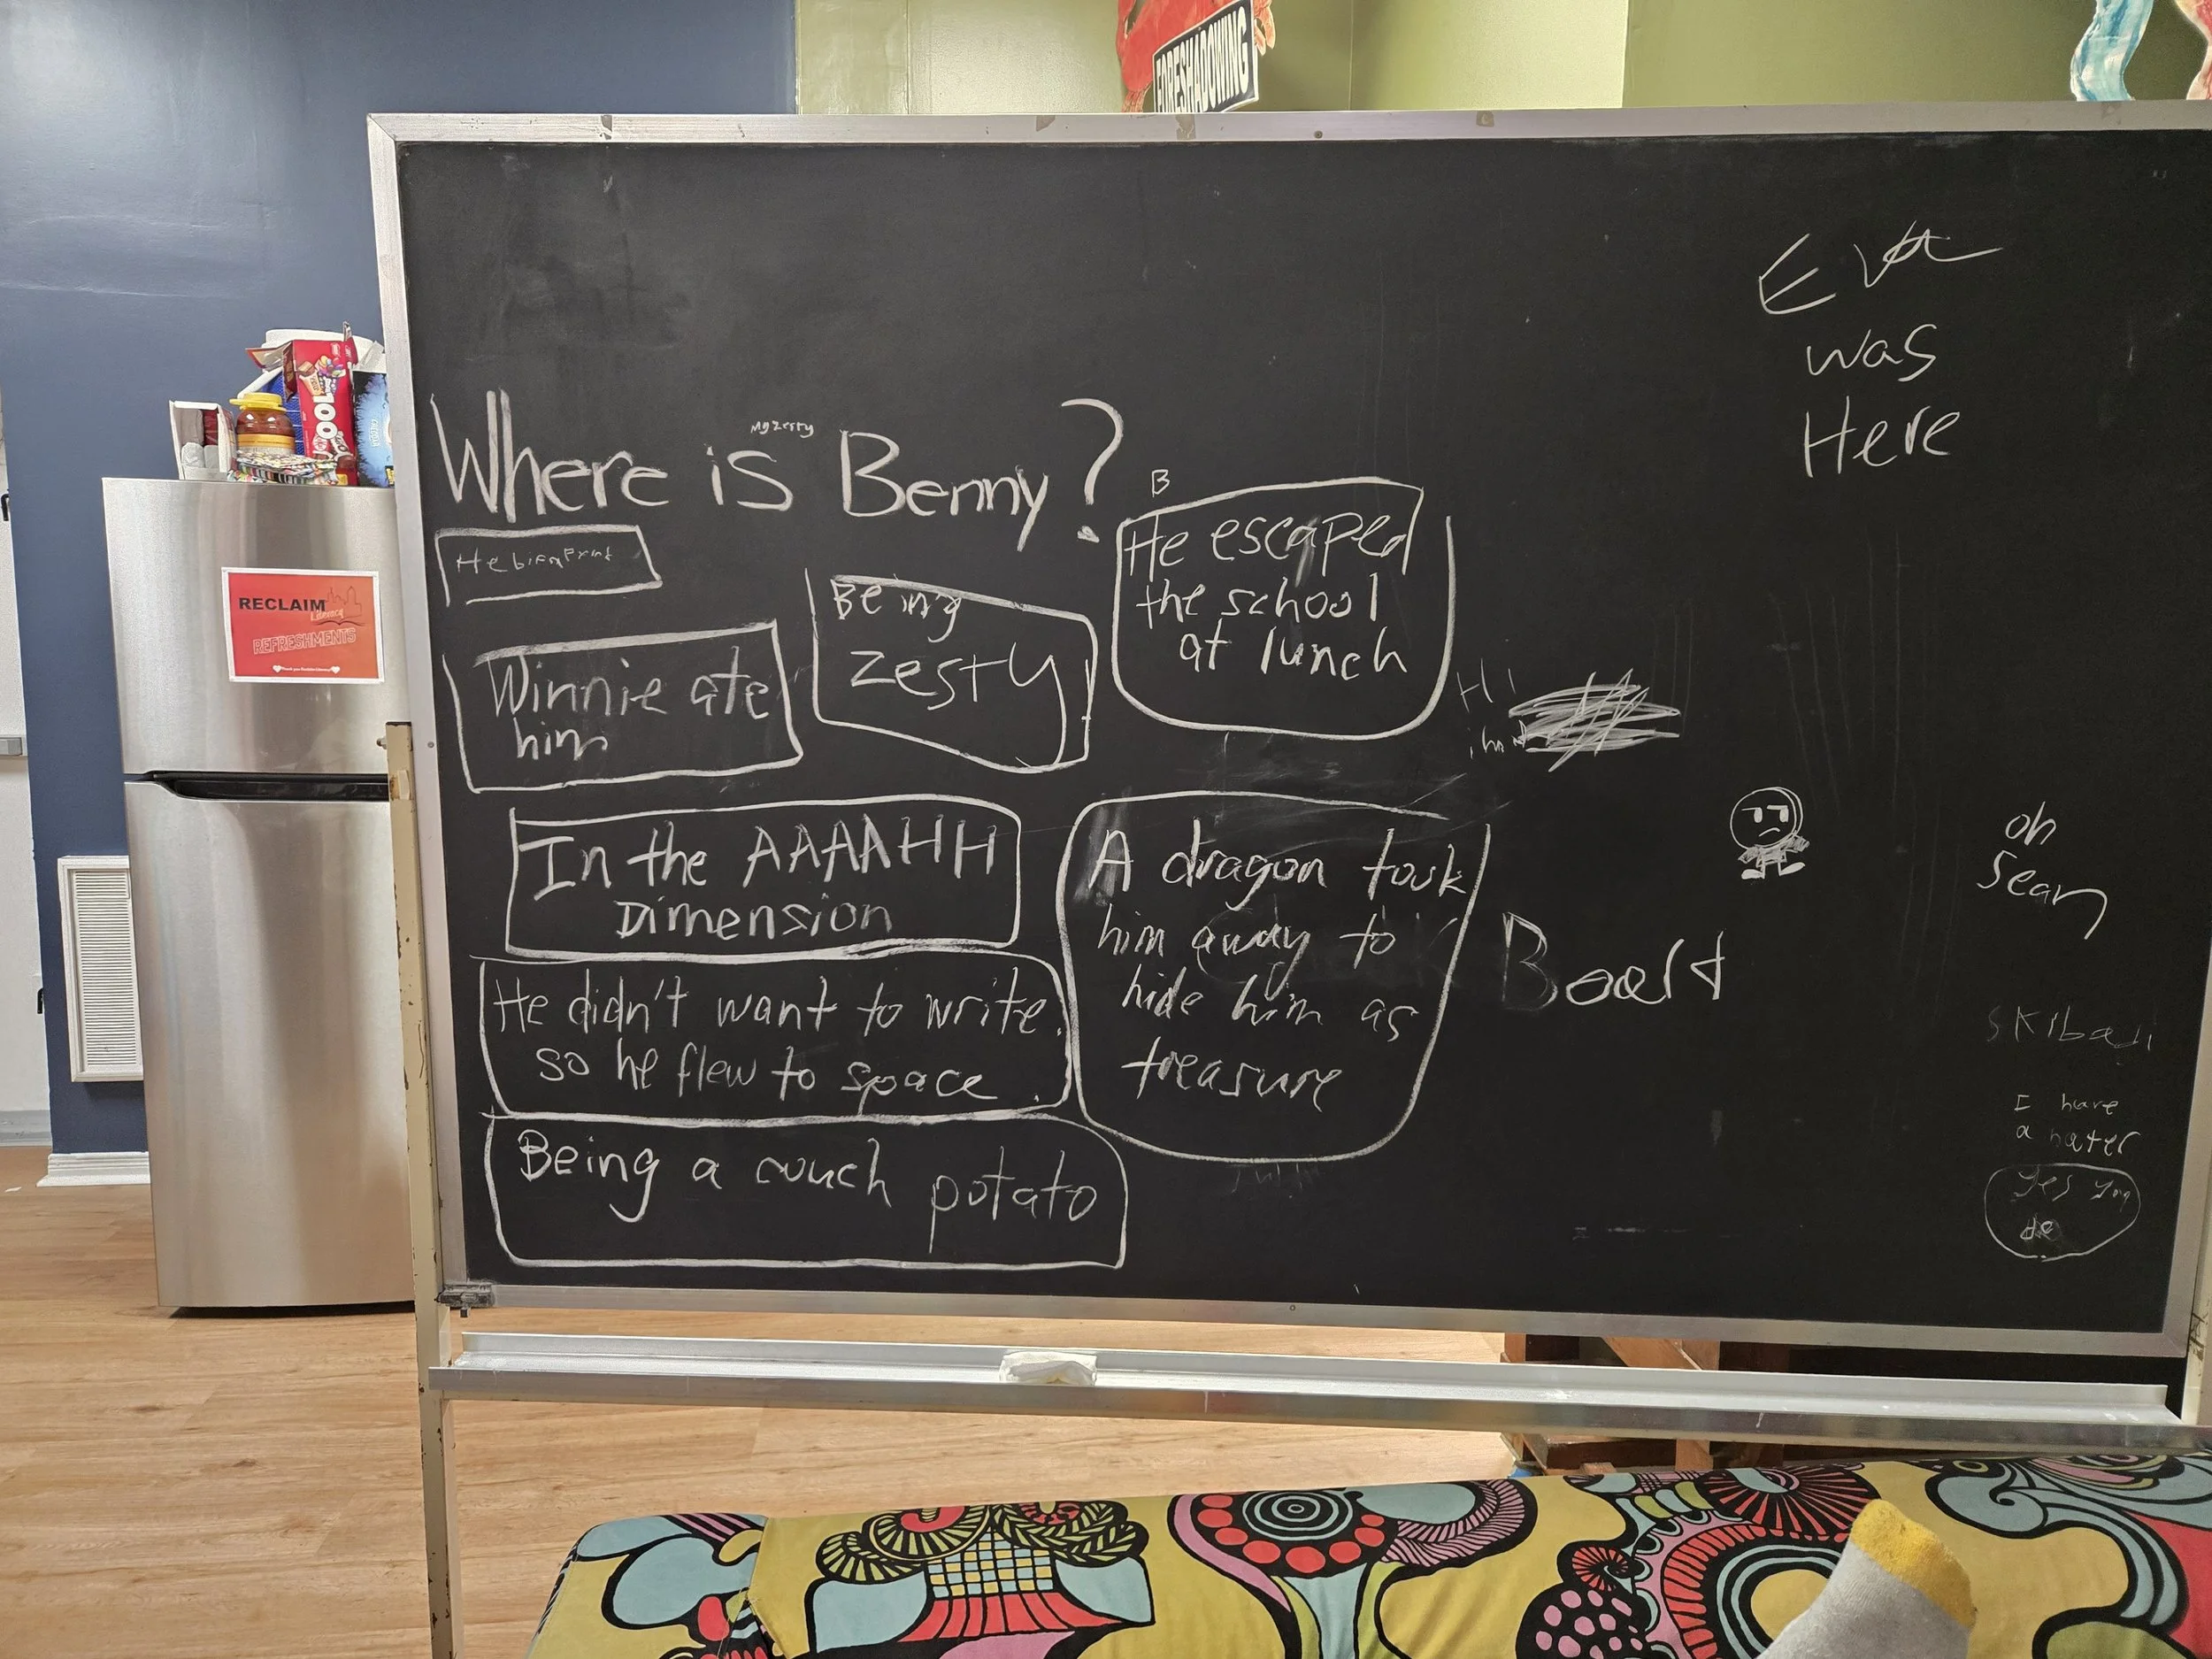 FORESHADOWING
Eva
was
Here
100
RECLAIM
Literacy
REFRESHMENTS
Where is Benny?
B
Winnie ate
him
Being
zesty
He escaped
the school
at lunch
Hi
In the AAAAHH
Dimension
A dragon took
him away to
hide him as
treasure
He didn't want to write.
so he flew to space.
Being a couch potato
oh
Sean
I have
a hater
yes you
do